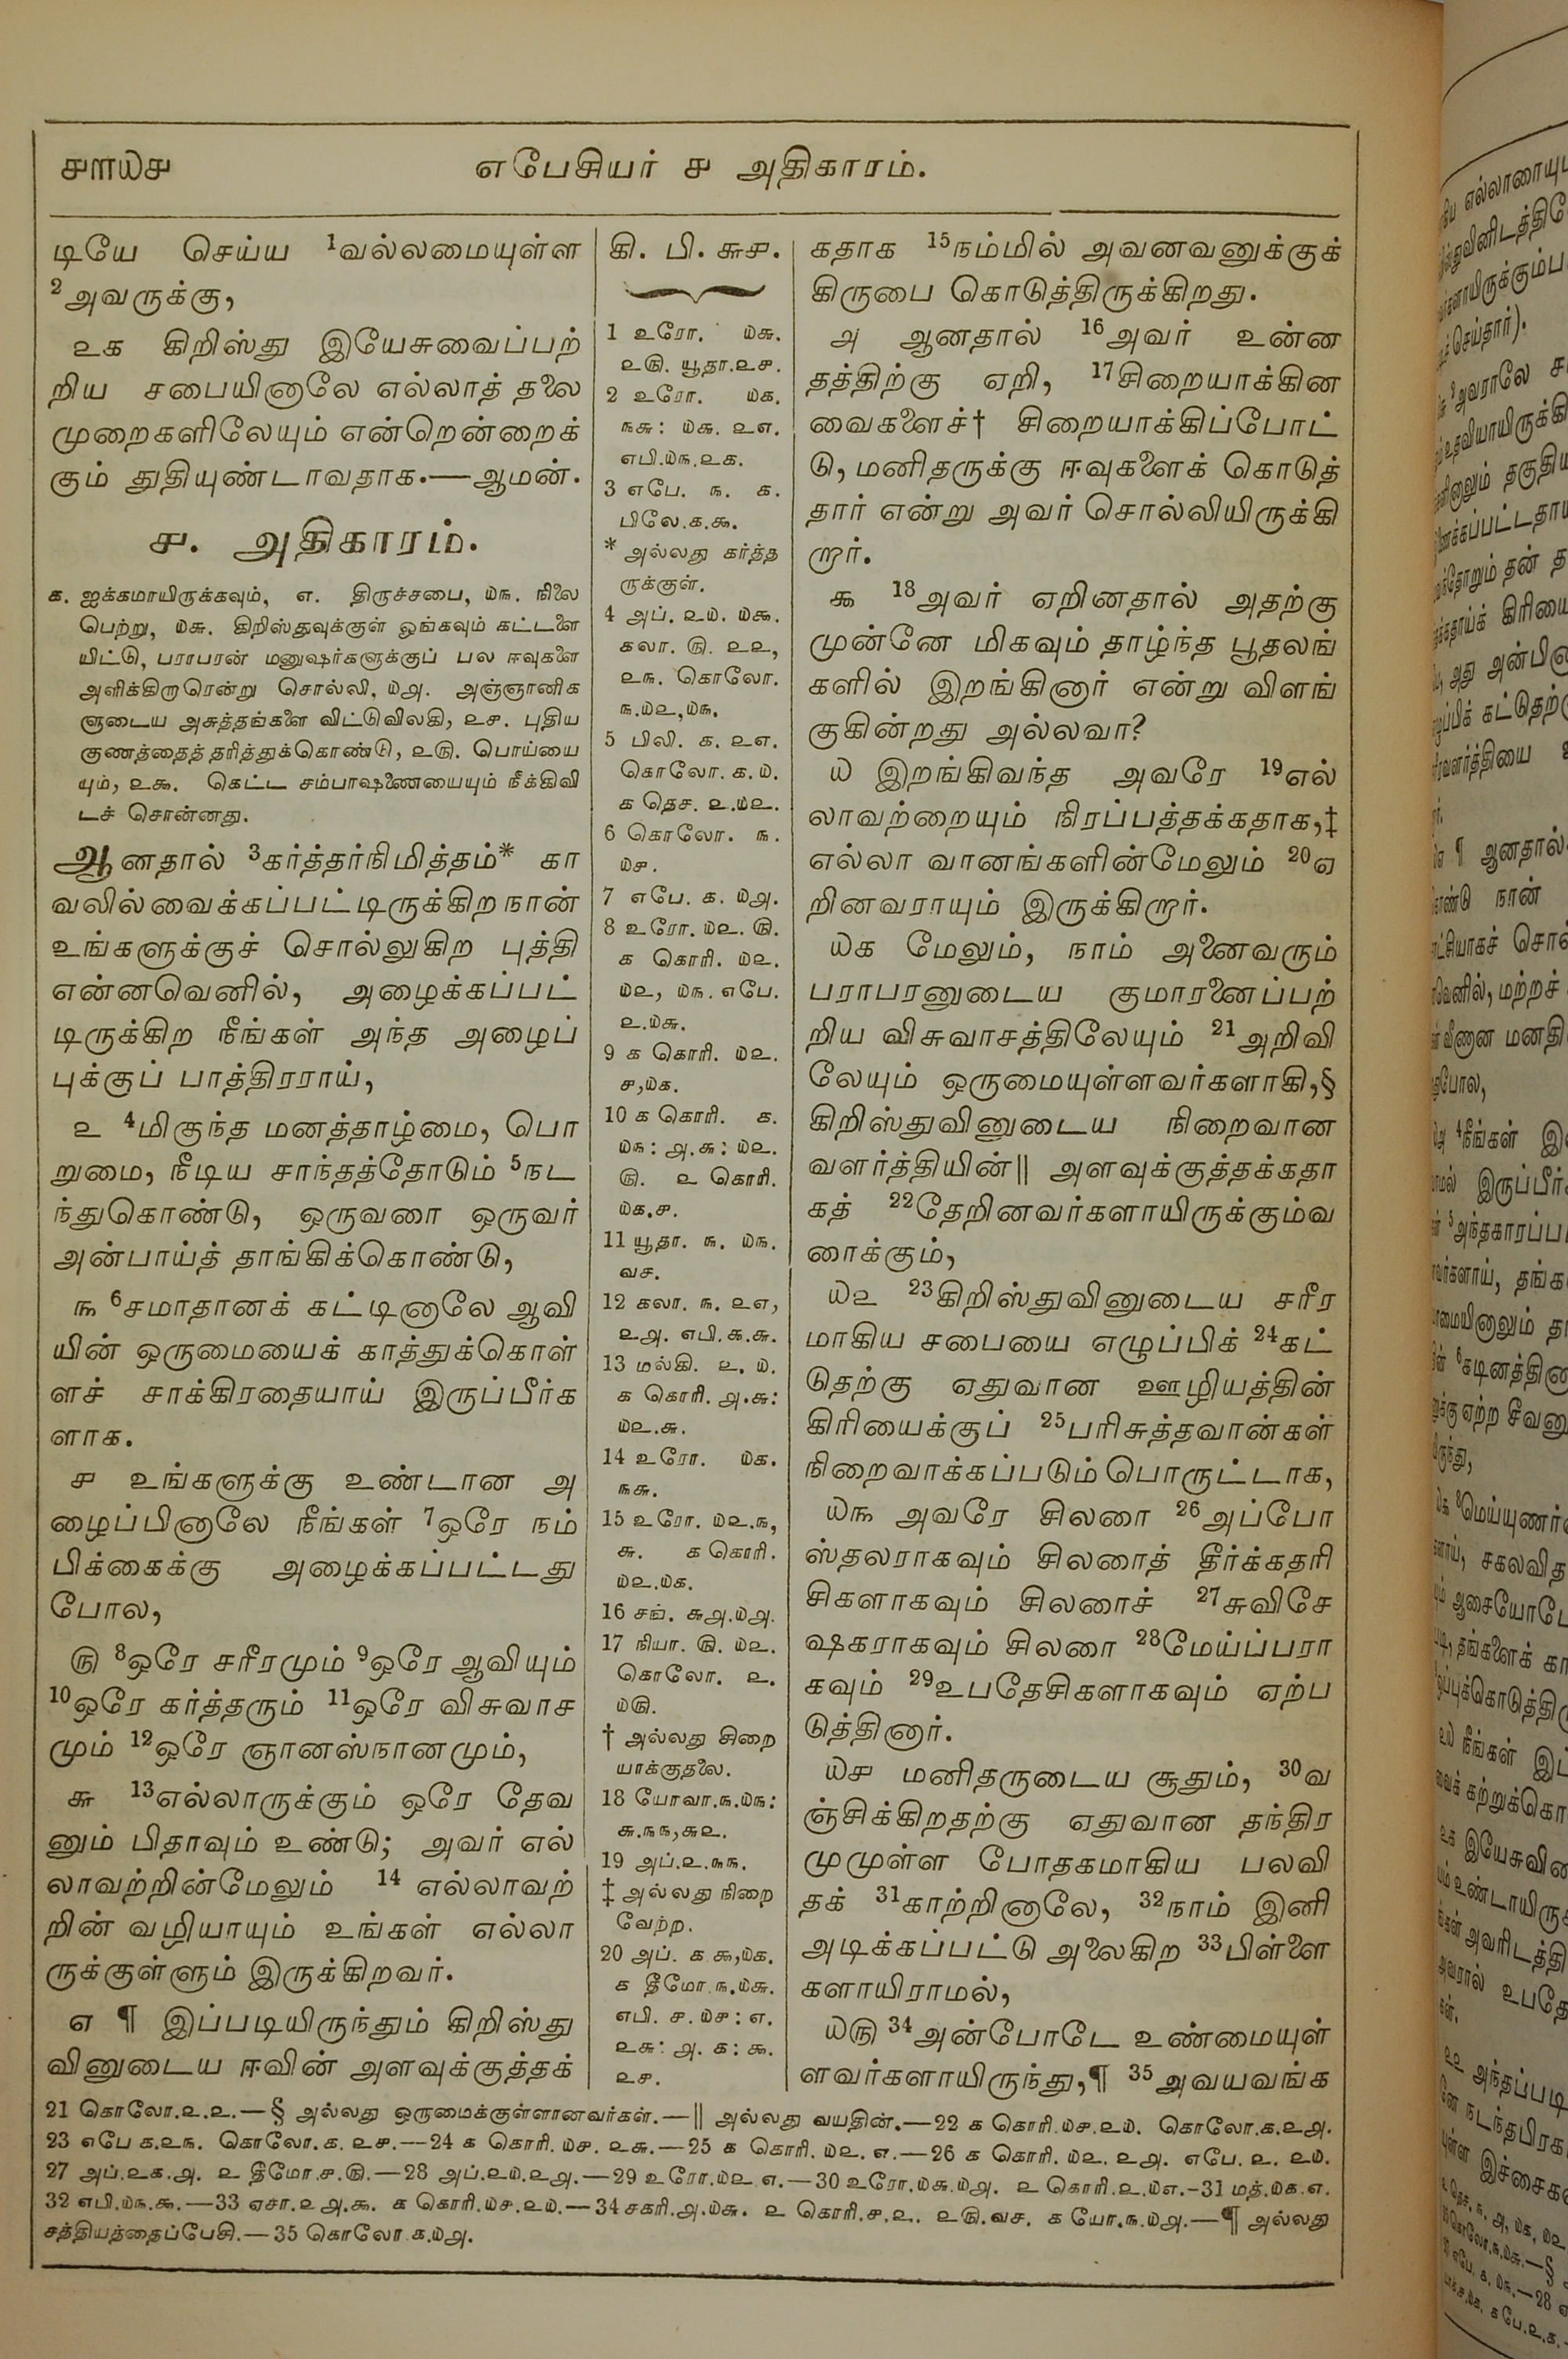 ௪௱௰௪ எபேசியர் ௪ அதிகாரம்.
டியே செய்ய 1வல்லமையுள்ள
2அவருக்கு,
௨௧ கிறிஸ்து இயேசுவைப்பற்
றிய சபையினாலே எல்லாத் தலை
முறைகளிலேயும் என்றென்றைக்
கும் துதியுண்டாவதாக.—ஆமன்.
௪. அதிகாரம்.
௧. ஐக்கமாயிருக்கவும், ௭. திருச்சபை, ௰௩. நிலை
பெற்று, ௰௬. கிறிஸ்துவுக்குள் ஓங்கவும் கட்டளை
யிட்டு, பராபரன் மனுஷர்களுக்குப் பல ஈவுகளை
அளிக்கிறாரென்று சொல்லி, ௰௮. அஞ்ஞானிக
ளுடைய அசுத்தங்களை விட்டுவிலகி, ௨௪. புதிய
குணத்தைத் தரித்துக்கொண்டு, ௨௫. பொய்யை
யும், ௨௯. கெட்ட சம்பாஷணையையும் நீக்கிவி
டச் சொன்னது.
ஆனதால் 3கர்த்தர்நிமித்தம்* கா
வலில்வைக்கப்பட்டிருக்கிறநான்
உங்களுக்குச் சொல்லுகிற புத்தி
என்னவெனில், அழைக்கப்பட்
டிருக்கிற நீங்கள் அந்த அழைப்
புக்குப் பாத்திரராய்,
௨ 4மிகுந்த மனத்தாழ்மை, பொ
றுமை, நீடிய சாந்தத்தோடும் 5நட
ந்துகொண்டு, ஒருவரை ஒருவர்
அன்பாய்த் தாங்கிக்கொண்டு,
௩ 6சமாதானக் கட்டினாலே ஆவி
யின் ஒருமையைக் காத்துக்கொள்
ளச் சாக்கிரதையாய் இருப்பீர்க
ளாக.
௪ உங்களுக்கு உண்டான அ
ழைப்பினாலே நீங்கள் 7ஒரே நம்
பிக்கைக்கு அழைக்கப்பட்டது
போல,
௫ 8ஒரே சரீரமும் 9ஒரே ஆவியும்
10ஒரே கர்த்தரும் 11ஒரே விசுவாச
மும் 12ஒரே ஞானஸ்நானமும்,
௬ 13எல்லாருக்கும் ஒரே தேவ
னும் பிதாவும் உண்டு; அவர் எல்
லாவற்றின்மேலும் 14 எல்லாவற்
றின் வழியாயும் உங்கள் எல்லா
ருக்குள்ளும் இருக்கிறவர்.
௭ ¶ இப்படியிருந்தும் கிறிஸ்து
வினுடைய ஈவின் அளவுக்குத்தக்
கி. பி. ௬௪.
1 உரோ. ௰௬.
௨௫. யூதா.௨௪.
2 உரோ. ௰௧.
௩௬: ௰௬. ௨௭.
எபி.௰௩.௨௧.
3 எபே. ௩. ௧.
பிலே.௧.௯.
* அல்லது கர்த்த
ருக்குள்.
4 அப். ௨௰. ௰௯.
கலா. ௫. ௨௨,
௨௩. கொலோ.
௩.௰௨,௰௩.
5 பிலி. ௧. ௨௭.
கொலோ. ௧.௰.
௧ தெச. ௨.௰௨.
6 கொலோ. ௩.
௰௪.
7 எபே. ௧. ௰௮.
8 உரோ. ௰௨. ௫.
௧ கொரி. ௰௨.
௰௨, ௰௩. எபே.
௨.௰௬.
9 ௧ கொரி. ௰௨.
௪,௰௧.
10 ௧ கொரி. ௧.
௰௩: ௮.௬: ௰௨.
௫. ௨ கொரி.
௰௧.௪.
11 யூதா. ௩. ௰௩.
வச.
12 கலா. ௩. ௨௭,
௨௮. எபி.௬.௬.
13 மல்கி. ௨. ௰.
௧ கொரி. ௮.௬:
௰௨.௬.
14 உரோ. ௰௧.
௩௬.
15 உரோ. ௰௨.௩,
௬. ௧ கொரி.
௰௨.௰௧.
16 சங். ௬௮.௰௮.
17 நியா. ௫. ௰௨.
கொலோ. ௨.
௰௫.
† அல்லது சிறை
யாக்குதலை.
18 யோவா.௩.௰௩:
௬.௩௩,௬௨.
19 அப்.௨.௩௩.
‡ அல்லது நிறை
வேற்ற.
20 அப். ௧ ௯,௰௧.
௧ தீமோ.௩.௰௬.
எபி. ௪.௰௪: ௭.
௨௬: ௮. ௧: ௯.
௨௪.
கதாக 15நம்மில் அவனவனுக்குக்
கிருபை கொடுத்திருக்கிறது.
௮ ஆனதால் 16அவர் உன்ன
தத்திற்கு ஏறி, 17சிறையாக்கின
வைகளைச்† சிறையாக்கிப்போட்
டு, மனிதருக்கு ஈவுகளைக் கொடுத்
தார் என்று அவர் சொல்லியிருக்கி
றார்.
௯ 18அவர் ஏறினதால் அதற்கு
முன்னே மிகவும் தாழ்ந்த பூதலங்
களில் இறங்கினார் என்று விளங்
குகின்றது அல்லவா?
௰ இறங்கிவந்த அவரே 19எல்
லாவற்றையும் நிரப்பத்தக்கதாக,‡
எல்லா வானங்களின்மேலும் 20ஏ
றினவராயும் இருக்கிறார்.
௰௧ மேலும், நாம் அனைவரும்
பராபரனுடைய குமாரனைப்பற்
றிய விசுவாசத்திலேயும் 21அறிவி
லேயும் ஒருமையுள்ளவர்களாகி,§
கிறிஸ்துவினுடைய நிறைவான
வளர்த்தியின்|| அளவுக்குத்தக்கதா
கத் 22தேறினவர்களாயிருக்கும்வ
ரைக்கும்,
௰௨ 23கிறிஸ்துவினுடைய சரீர
மாகிய சபையை எழுப்பிக் 24கட்
டுதற்கு ஏதுவான ஊழியத்தின்
கிரியைக்குப் 25பரிசுத்தவான்கள்
நிறைவாக்கப்படும்பொருட்டாக,
௰௩ அவரே சிலரை 26அப்போ
ஸ்தலராகவும் சிலரைத் தீர்க்கதரி
சிகளாகவும் சிலரைச் 27சுவிசே
ஷகராகவும் சிலரை 28மேய்ப்பரா
கவும் 29உபதேசிகளாகவும் ஏற்ப
டுத்தினார்.
௰௪ மனிதருடைய சூதும், 30வ
ஞ்சிக்கிறதற்கு ஏதுவான தந்திர
முமுள்ள போதகமாகிய பலவி
தக் 31காற்றினாலே, 32நாம் இனி
அடிக்கப்பட்டு அலைகிற 33பிள்ளை
களாயிராமல்,
௰௫ 34அன்போடே உண்மையுள்
ளவர்களாயிருந்து,¶ 35அவயவங்க
21 கொலோ.௨.௨.—§ அல்லது ஒருமைக்குள்ளானவர்கள்.—|| அல்லது வயதின்.—22 ௧ கொரி.௰௪.௨௰. கொலோ.௧.௨௮.
23 எபே ௧.௨௩. கொலோ.௧. ௨௪.—24 ௧ கொரி. ௰௪. ௨௬.—25 ௧ கொரி. ௰௨. ௭.—26 ௧ கொரி. ௰௨. ௨௮. எபே. ௨. ௨௰.
27 அப்.௨௧.௮. ௨ தீமோ.௪.௫.—28 அப்.௨௰.௨௮.—29 உரோ.௰௨ ௭.—30 உரோ.௰௬.௰௮. ௨ கொரி.௨.௰௭.–31 மத்.௰௧.௭.
32 எபி.௰௩.௯.—33 ஏசா.௨௮.௯. ௧ கொரி.௰௪.௨௰.—34 சகரி.௮.௰௬. ௨ கொரி.௪.௨. ௨௫.வச. ௧ யோ.௩.௰௮.—¶ அல்லது
சத்தியத்தைப்பேசி.—35 கொலோ.௧.௰௮.